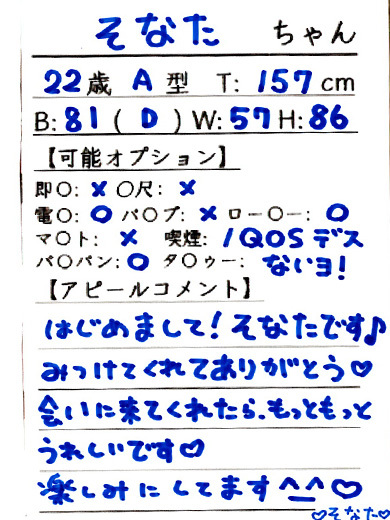 そなた ちゃん
22歳 A型 T:157cm
B:81(D)W:57H:86
【可能オプション】
即〇:× 〇尺:×
電〇:〇 バ〇ブ:× ロー〇ー:〇
マ〇ト:× 喫煙:IQOSデス
パ〇パン:〇 タ〇ゥー:ないヨ!
【アピールコメント】
はじめまして!そなたです♪
みつけてくれてありがとう♡
会いに来てくれたら、もっともっと
うれしいです♡
楽しみにしてます^_^♡
♡そなた♡